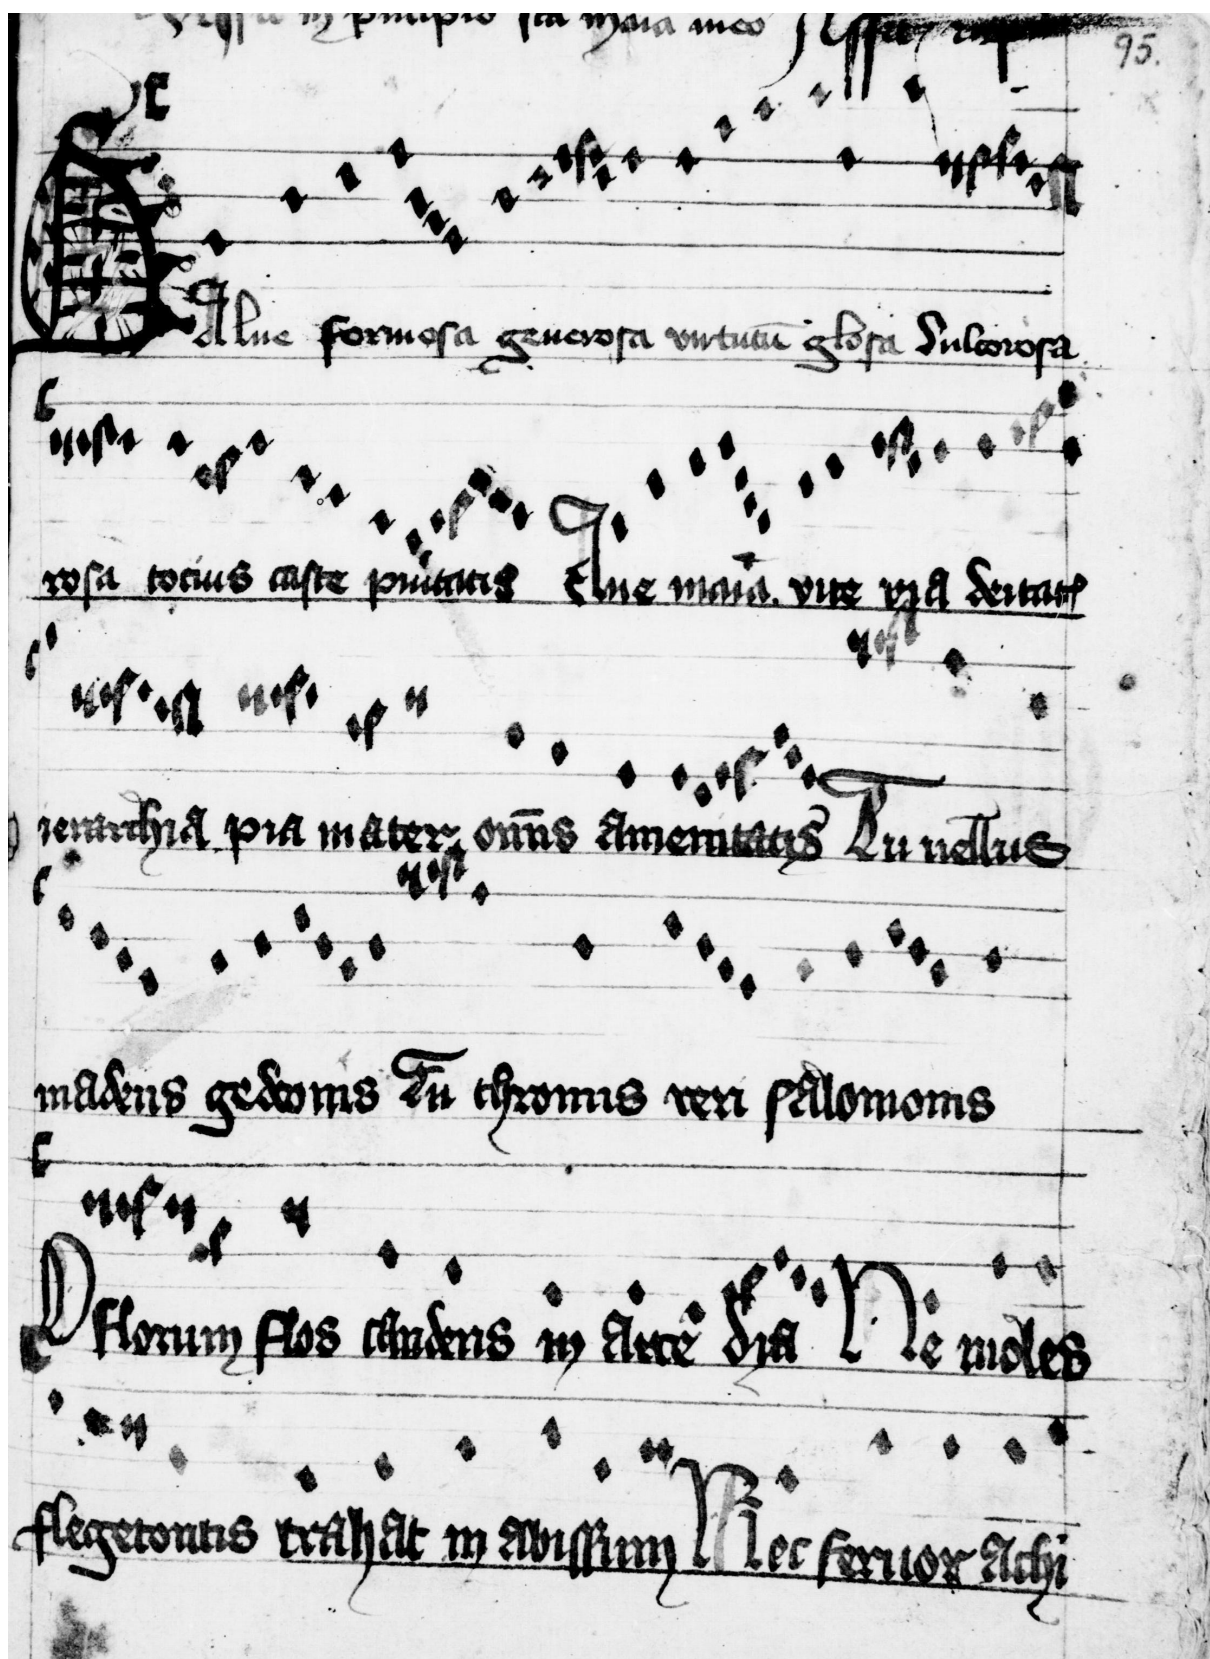 in principio sca maria meo
95.
Salue formosa generosa virtutū glosa dulcorosa
rosa tocius caste puritatis Aue maria. vite via deitatis
ierarchia pia mater omīs amenitatis Tu vellus
madens gedeonis Tu thronus veri salomonis
O florum flos candens in arce dia Ne moles
flegetontis trahat in abissum Nec feruor achi